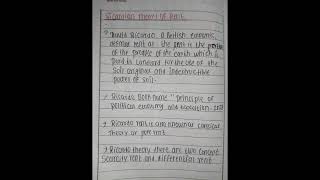 Ricardian theory of Rent.
David Ricardo, a British economist,
defined rent as the rent is the portion
of the produce of the earth which is
paid to landlord for the use of the
Soil original and Indestructible
power of soil.
Ricardo Book name "principle of
political economy and taxation
Ricardo rent is also known as classical
theory of rent
Ricardo theory there are two concept
Scarcity rent and differential rent